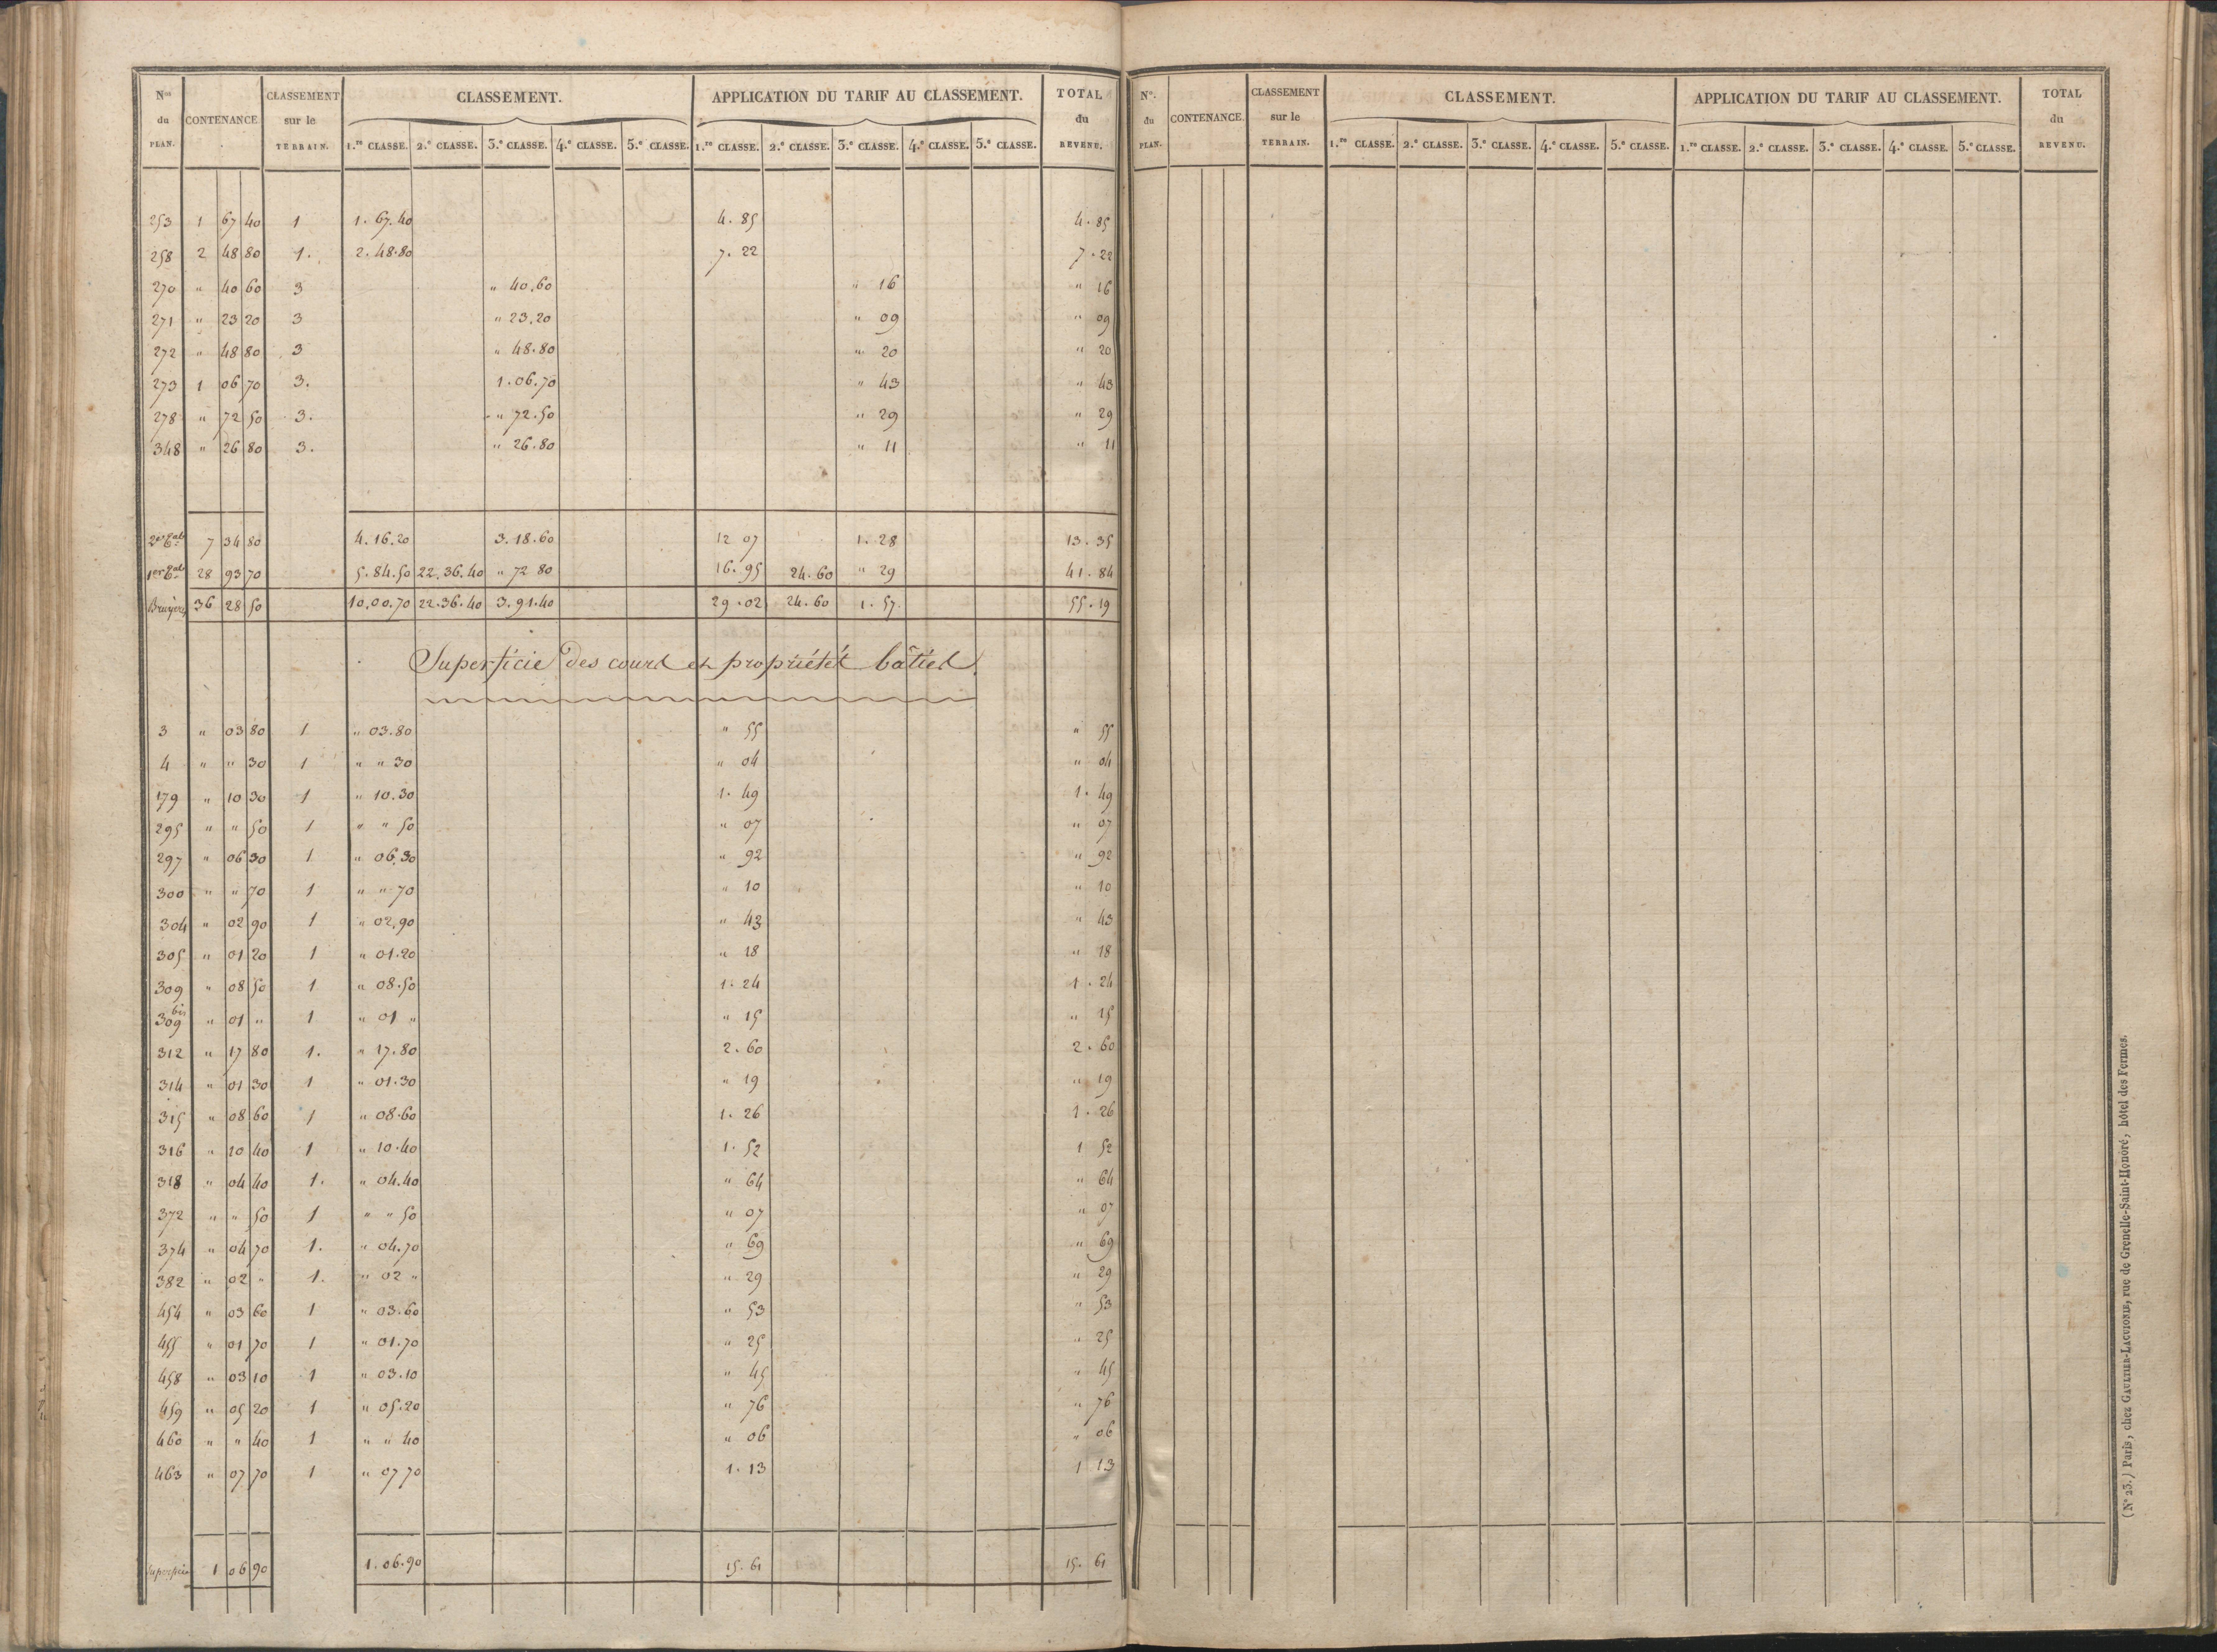 Nos du PLAN. CONTENANCE CLASSEMENT sur le TERRAIN. CLASSEMENT. APPLICATION DU TARIF AU CLASSEMENT. TOTAL du REVENU.
1.re CLASSE. 2.e CLASSE. 3.e CLASSE. 4.e CLASSE. 5.e CLASSE. 1.re CLASSE. 2.e CLASSE. 3.e CLASSE. 4.e CLASSE. 5.e CLASSE.
253 1 67 40 1 1. 67. 40 4. 85 4. 85
258 2 48 80 1. 2. 48. 80 7. 22 7. 22
270 " 40 60 3 " 40. 60 " 16 " 16
271 " 23 20 3 " 23. 20 " 09 " 09
272 " 48 80 3 " 48. 80 " 20 " 20
273 1 06 70 3. 1. 06. 70 " 43 " 43
278 " 72 50 3. " 72. 50 " 29 " 29
348 " 26 80 3. " 26. 80 " 11 " 11
7 34 80 4. 16. 20 3. 18. 60 12 07 1. 28 13. 35
28 93 70 5. 84. 50 22. 36. 40 " 72 80 16. 95 24. 60 " 29 41. 84
Bruyères 36 28 50 10. 00. 70 22. 36. 40 3. 91. 40 29. 02 24. 60 1. 57. 55. 19
Superficie des cours et propriétés bâties.
3 " 03 80 1 " 03. 80 " 55 " 55
4 " " 30 1 " " 30 " 04 " 04
179 " 10 30 1 " 10. 30 1. 49 1. 49
295 " " 50 1 " " 50 " 07 " 07
297 " 06 30 1 " 06. 30 " 92 " 92
300 " " 70 1 " " 70 " 10 " 10
304 " 02 90 1 " 02. 90 " 43 " 43
305 " 01 20 1 " 01. 20 " 18 " 18
309 " 08 50 1 " 08. 50 1. 24 1. 24
309 bis " 01 " 1 " 01 " " 15 " 15
312 " 17 80 1. " 17. 80 2. 60 2. 60
314 " 01 30 1 " 01. 30 " 19 " 19
315 " 08 60 1 " 08. 60 1. 26 1. 26
316 " 10 40 1 " 10. 40 1. 52 1 52
318 " 04 40 1. " 04. 40 " 64 " 64
372 " " 50 1 " " 50 " 07 " 07
374 " 04 70 1. " 04. 70 " 69 " 69
382 " 02 " 1. " 02 " " 29 " 29
454 " 03 60 1 " 03. 60 " 53 " 53
455 " 01 70 1 " 01. 70 " 25 " 25
458 " 03 10 1 " 03. 10 " 45 " 45
459 " 05 20 1 " 05. 20 " 76 " 76
460 " " 40 1 " " 40 " 06 " 06
463 " 07 70 1 " 07 70 1. 13 1 13
Superficie 1 06 90 1. 06. 90 15. 61 15. 61
No. du PLAN. CONTENANCE. CLASSEMENT sur le TERRAIN. CLASSEMENT. APPLICATION DU TARIF AU CLASSEMENT. TOTAL du REVENU.
1.re CLASSE. 2.e CLASSE. 3.e CLASSE. 4.e CLASSE. 5.e CLASSE. 1.re CLASSE. 2.e CLASSE. 3.e CLASSE. 4.e CLASSE. 5.e CLASSE.
(No 23.) Paris, chez GAULTIER-LAGUIONIE, rue de Grenelle-Saint-Honoré, hôtel des Fermes.